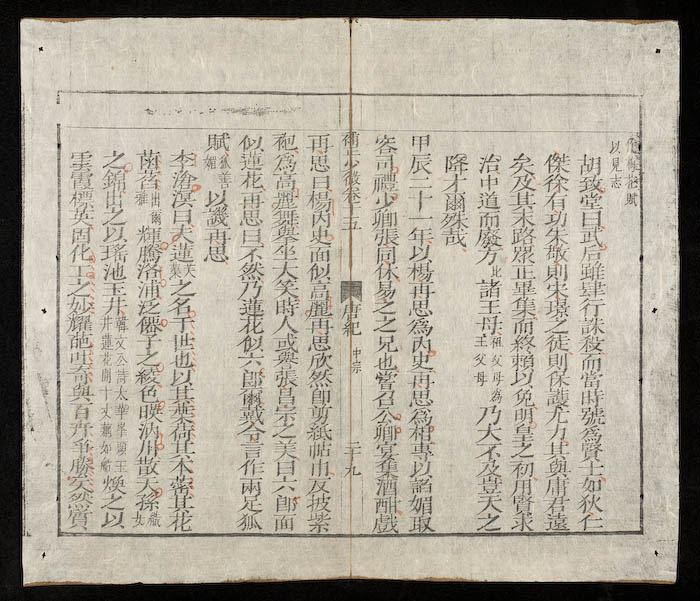 以見志
胡致堂曰武后雖肆行誅殺而當時號爲賢士如狄仁
傑徐有功朱敬則宋璟之徒則保護尤力其與庸君遠
矣及其末路眾正畢集而終賴以免明皇之初用賢求
治中道而廢方此諸王母祖父母爲王父母乃大不及豈天之
降才爾殊哉
甲辰二十一年以楊再思爲內史再思爲相專以諂媚取
容司禮少卿張同休易之之兄也嘗召公卿宴集酒酣戲
補少微卷十五 唐紀 中宗 二十九
再思曰楊內史面似高麗再思欣然即剪紙帖巾反披紫
袍爲高麗舞舉坐大笑時人或譽張昌宗之美曰六郎面
似蓮花再思曰不然乃蓮花似六郎爾戴公言作兩足狐
賦狐善媚以譏再思
李滄溟曰夫蓮芙蕖之名于世也以其葉荷其本蔤其花
菡萏出爾雅輝騰洛浦泛儷子之綾色映汭川散天孫織女
之錦出之以瑤池玉井韓文公詩太華峯頭玉井蓮花開十丈藕如船煥之以
雲霞標英固化工之妙耀葩出奇與百卉爭勝矣然質